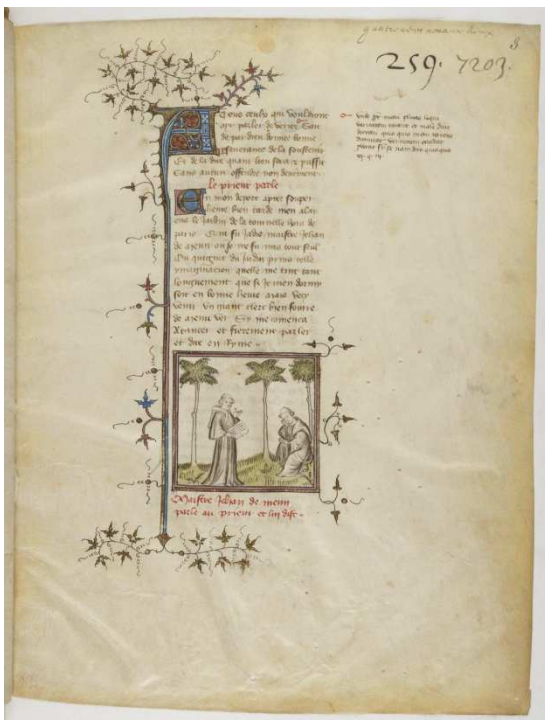 quatrevins nonante deux
8
259. 7203.
A tous ceulx qui vouldront
oyr parler de verite Soit
de par dieu donnee bonne
esperance de la soustenir
Et de la dire quant lieu sera et puisse
Sans autrui offendre non deuement
Le prieur parle
En mon deport apres souper
heure bien tarde men alay
ens le jardin de la tournelle hors de
paris Qui fu jadis maistre Jehan
de meun ou je me fu mis tout seul
Du quignet du jardin prins telle
ymaginacion quelle me tint tant
longuement que se je men dormy
soit en bonne heure mais vecy
venir un grant clerc bien fourre
de menu ver Sy me commenca
a tancer et fierement parler
et dire en ryme
Maistre Jehan de meun
parle au prieur et luy dist